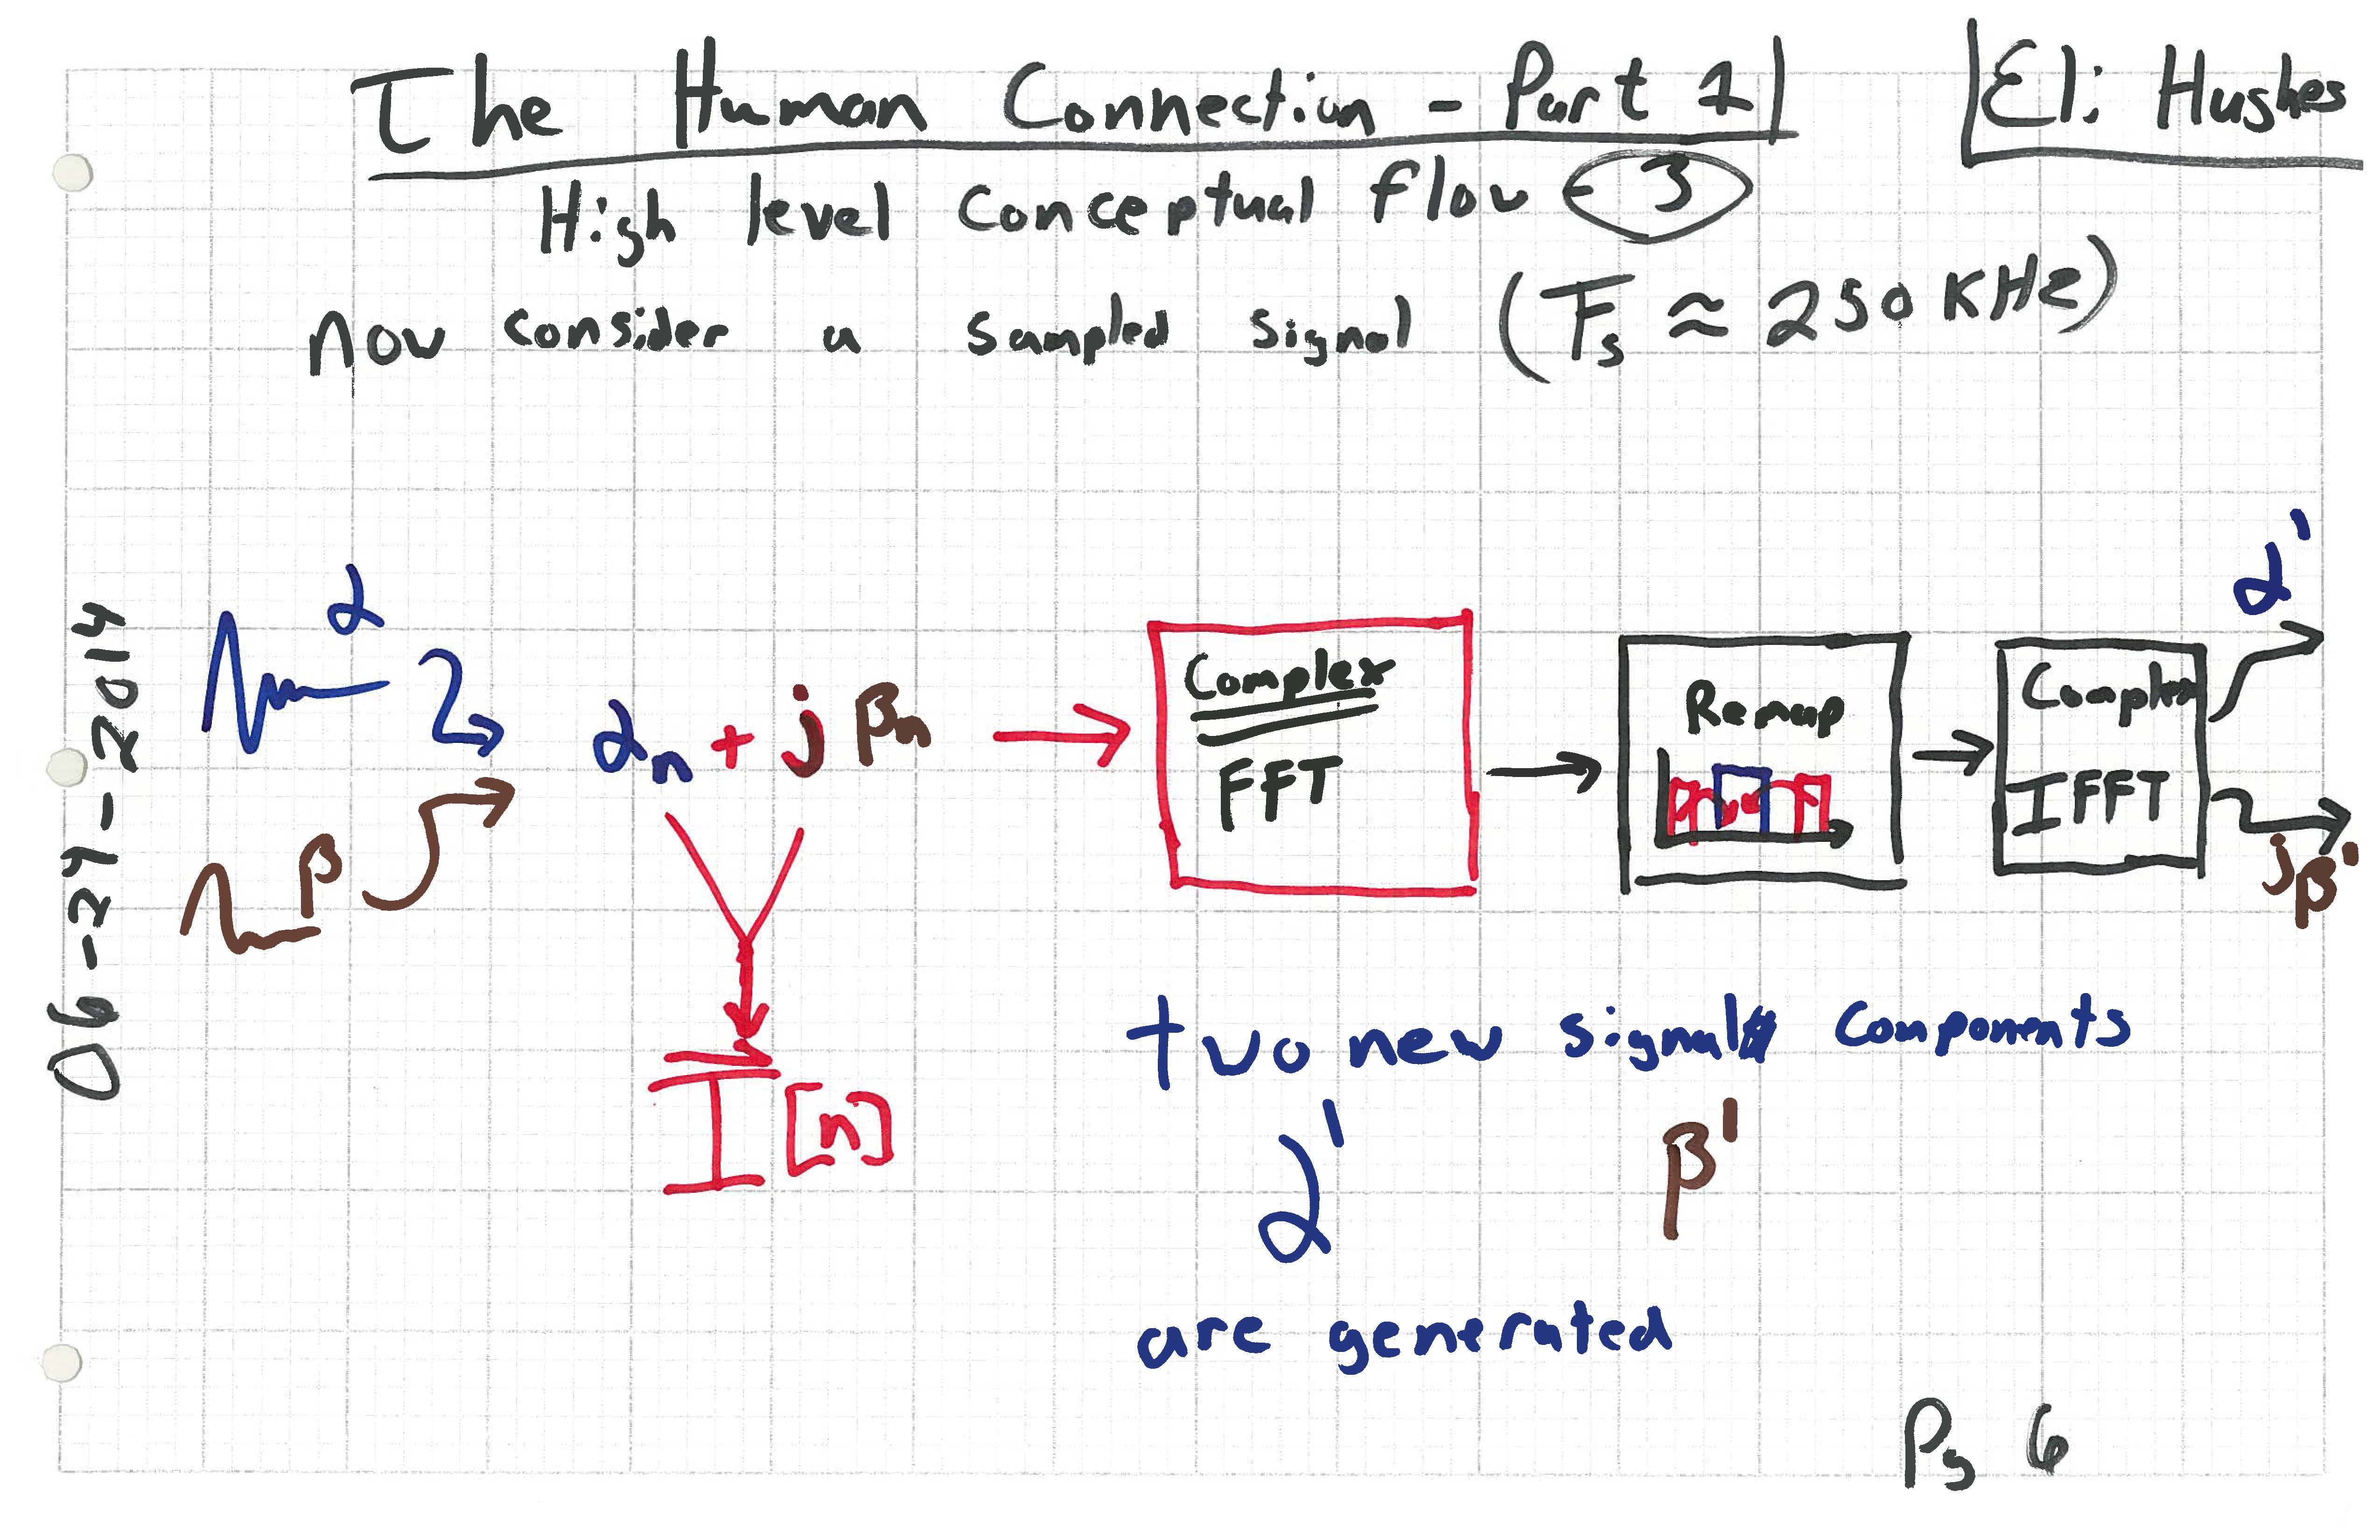 The Human Connection - Part 1
Eli Hughes
High level Conceptual flow - 3
now consider a sampled signal (Fs ≈ 250 KHz)
06-29-2014
α
β
αn + j βn
I[n]
Complex
FFT
Remap
Complex
IFFT
α'
jβ'
two new signal components
α' β'
are generated
Pg 6